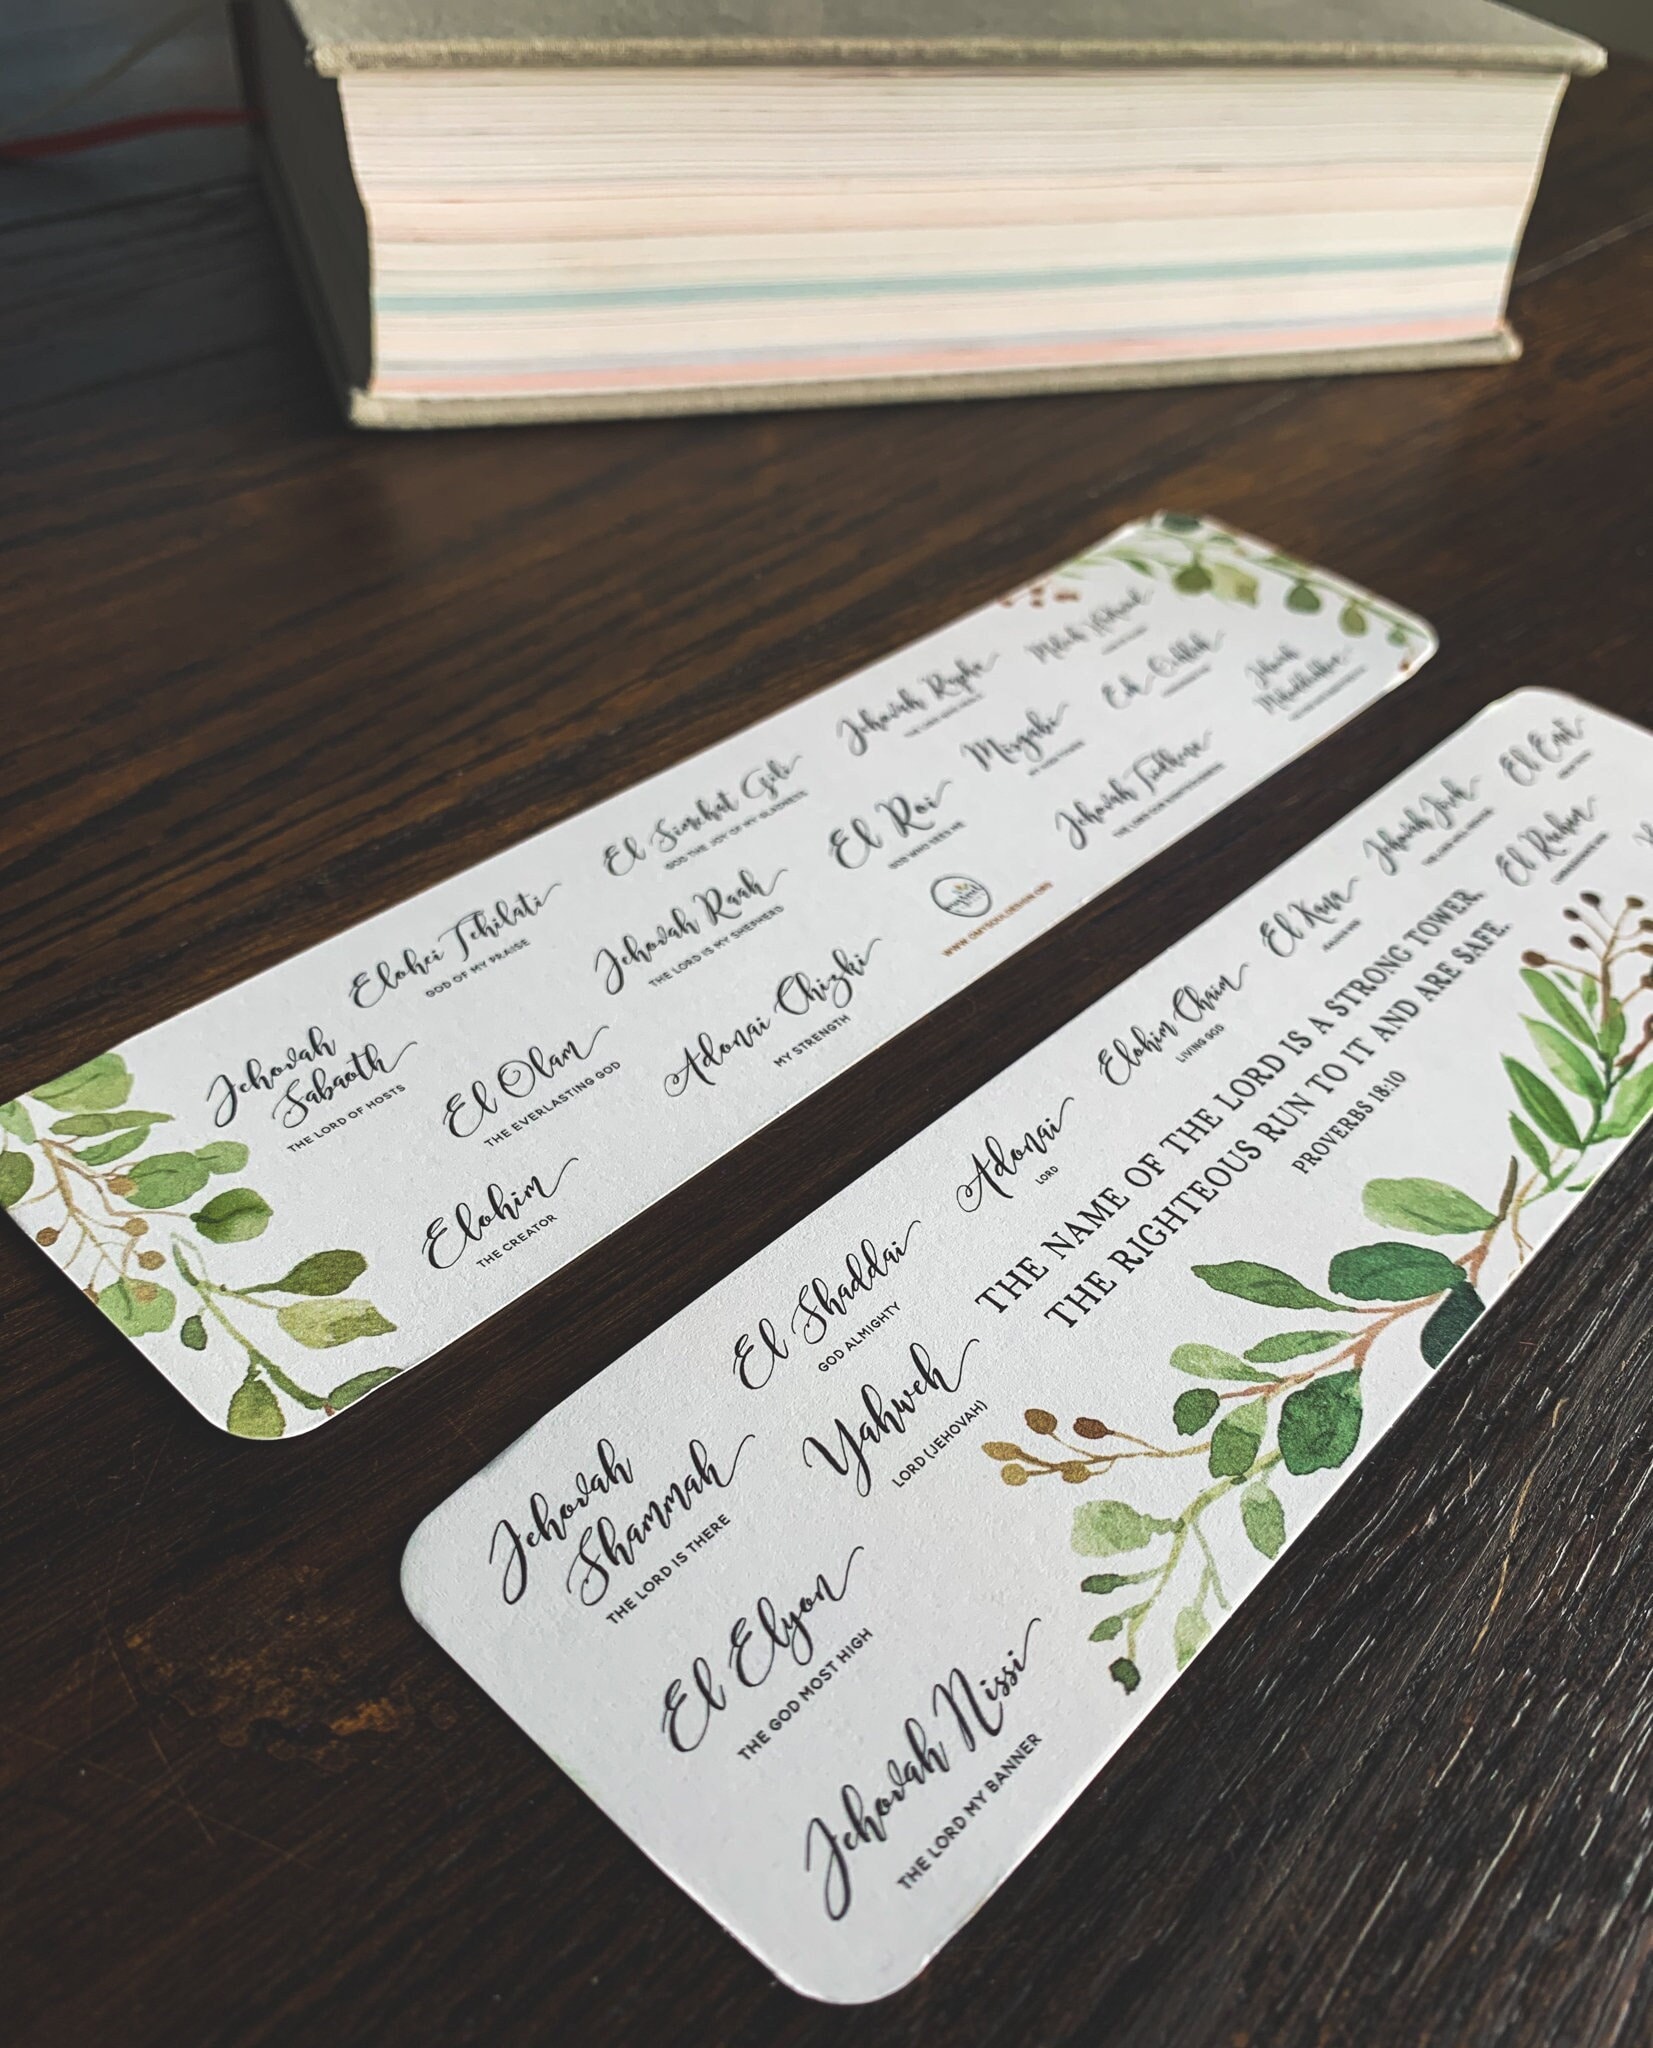 Jehovah
Sabaoth
THE LORD OF HOSTS
Elohei Tehilati
GOD OF MY PRAISE
El Simchat Gili
GOD THE JOY OF MY GLADNESS
Jehovah Rophe
El Olam
THE EVERLASTING GOD
Jehovah Raah
THE LORD IS MY SHEPHERD
El Roi
GOD WHO SEES ME
Elohim
THE CREATOR
Adonai Chizki
MY STRENGTH
WWW.OMYSOULDESIGN.ORG
Jehovah Tsidkenu
THE LORD OUR RIGHTEOUSNESS
Jehovah
Shammah
THE LORD IS THERE
El Shaddai
GOD ALMIGHTY
Adonai
LORD
Elohim Chaim
LIVING GOD
El Kana
Jehovah Jireh
El Elyon
THE GOD MOST HIGH
Yahweh
LORD (JEHOVAH)
THE NAME OF THE LORD IS A STRONG TOWER.
THE RIGHTEOUS RUN TO IT AND ARE SAFE.
PROVERBS 18:10
El Rachum
Jehovah Nissi
THE LORD MY BANNER